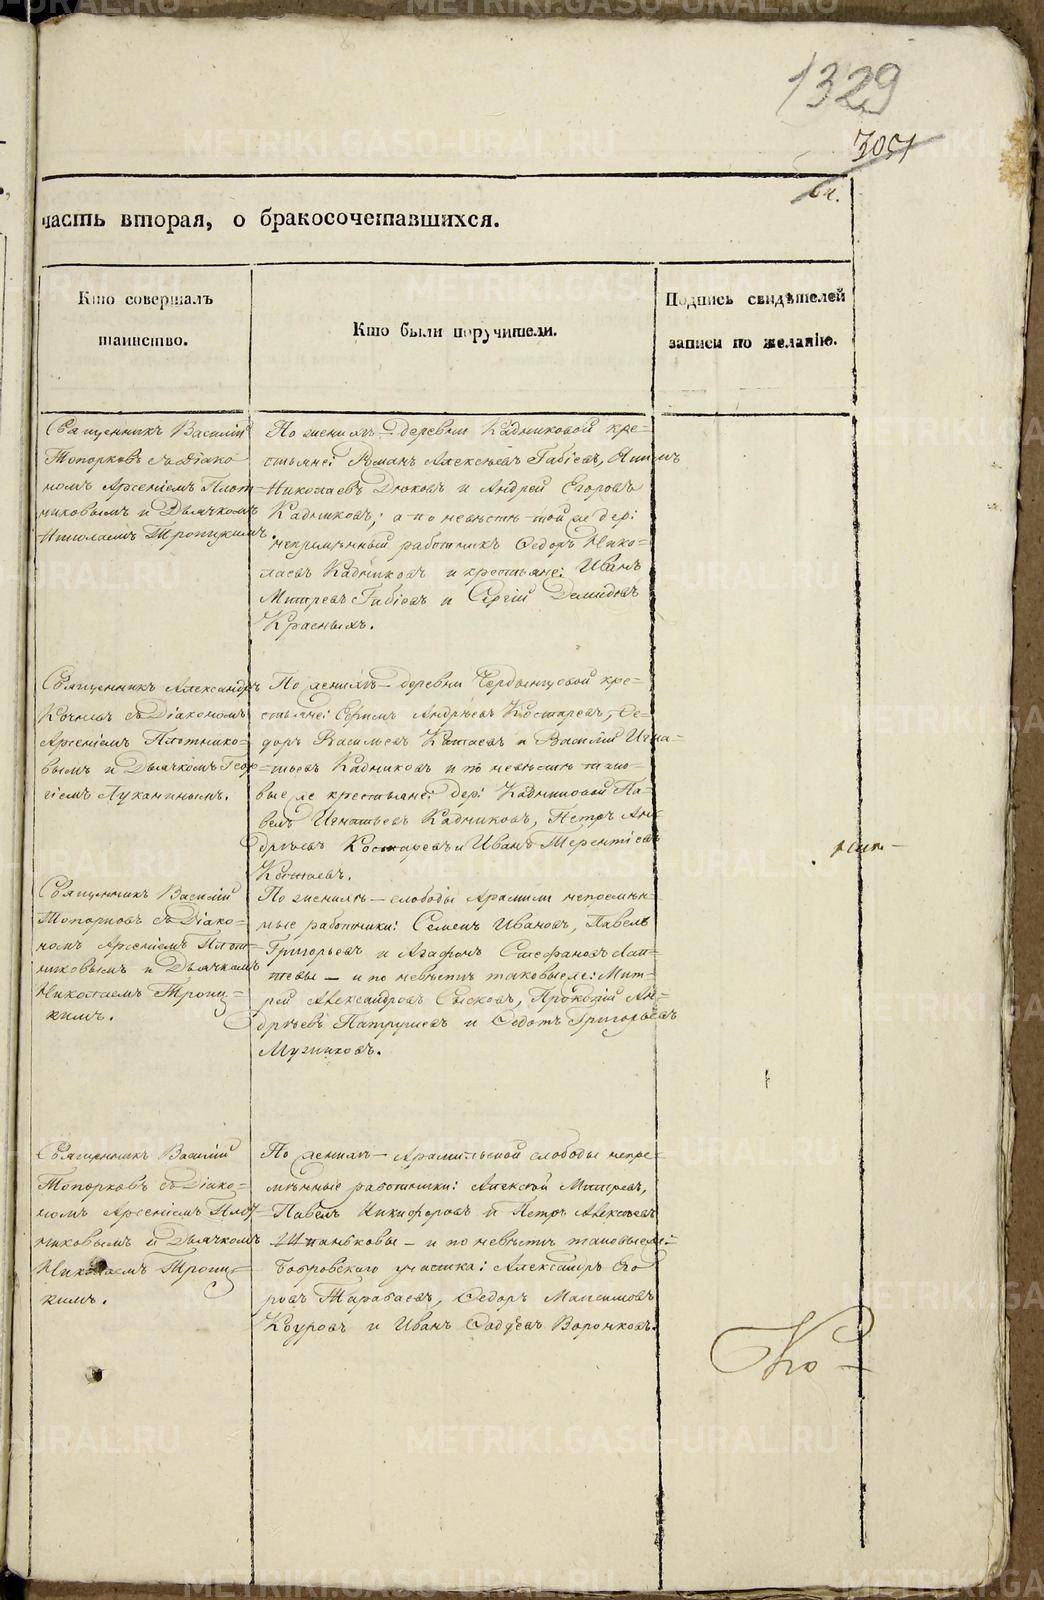 1329
3051
часть вторая, о бракосочетавшихся.
Кто совершалъ
таинство.
Кто были поручители.
Подпись свидѣтелей
записи по желанію.
Священникъ Василій
Топорковъ съ Діако-
номъ Арсеніемъ Плот-
никовымъ и Дьячкомъ
Николаемъ Троицкимъ.
По женихѣ – деревни Кадниковой кре-
стьяне: Романъ Алексѣевъ Габіевъ, Якимъ
Николаевъ Дюковъ и Андрей Егоровъ
Кадниковъ; а по невѣстѣ той же дер:
непремѣнный работникъ Ѳедоръ Нико-
лаевъ Кадниковъ и крестьяне: Иванъ
Митревъ Габіевъ и Сергій Демидовъ
Красныхъ.
Священникъ Александръ
съ Діакономъ
Арсеніемъ Плотнико-
вымъ и Дьячкомъ Геор-
гіемъ Луканинымъ.
По женихѣ – деревни кре-
стьяне: Ефимъ Андрѣевъ Костаревъ, Ѳе-
доръ Васильевъ и Василій Игна-
тьевъ Кадниковъ и по невѣстѣ тако-
вые же крестьяне: дер: Кадниковой Па-
велъ Игнатьевъ Кадниковъ, Петръ Ан-
дрѣевъ Костаревъ и Иванъ Терентіевъ
Священникъ Василій
Топорковъ съ Діако-
номъ Арсеніемъ Плот-
никовымъ и Дьячкомъ
Николаемъ Троиц-
кимъ.
По женихѣ – слободы Арамили непремѣн-
ные работники: Семенъ Ивановъ, Павелъ
Григорьевъ и Агафонъ Стефановъ Лап-
тевы – и по невѣстѣ таковые же: Мит-
рей Александровъ Сысковъ, Прокопій Ан-
дрѣевъ Патрушевъ и Ѳедотъ Григорьевъ
Мугниковъ.
Священникъ Василій
Топорковъ съ Діако-
номъ Арсеніемъ Плот-
никовымъ и Дьячкомъ
Николаемъ Троиц-
кимъ.
По женихѣ – Арамильской слободы непре-
мѣнные работники: Алексѣй Митревъ,
Павелъ Никифоровъ и Петръ Алексѣевъ
Шпаньковы – и по невѣстѣ таковые же:
Бобровскаго участка: Александръ Его-
ровъ Тарабаевъ, Ѳедоръ Максимовъ
Коуровъ и Иванъ Ѳаддѣевъ Воронковъ.
METRIKI.GASO-URAL.RU